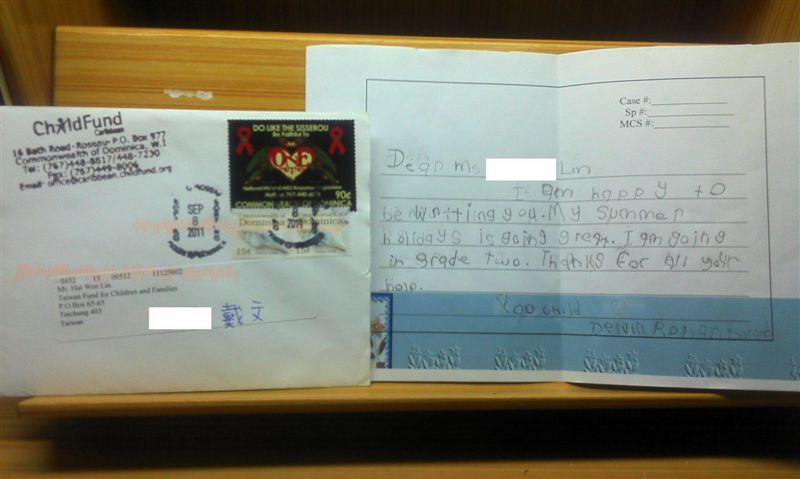 ChildFund
Caribbean
16 Bath Road - Roseau - P.O. Box 977
Commonwealth of Dominica, W.I
Tel: (767)448-8817/448-7230
Fax: (767)449-8006
Email: office@caribbean.childfund.org
SEP
8
2011
DO LIKE THE SISSEROU
Be Faithful To
ONE
90¢
COMMONWEALTH OF DOMINICA
15¢
15¢
0452 15 00512 11125602
Ms. Hui Wen Lin
Taiwan Fund for Children and Families
P.O.Box 65-65
Taichung 403
Taiwan
戴 文
Case #:
Sp #:
MCS #:
Dear Ms Lin
I am happy to
be writiing you. My Summer
holidays is going grea. I am going
in grade two. Thanks for all your
help.
Yoo child
Delvin Rohan